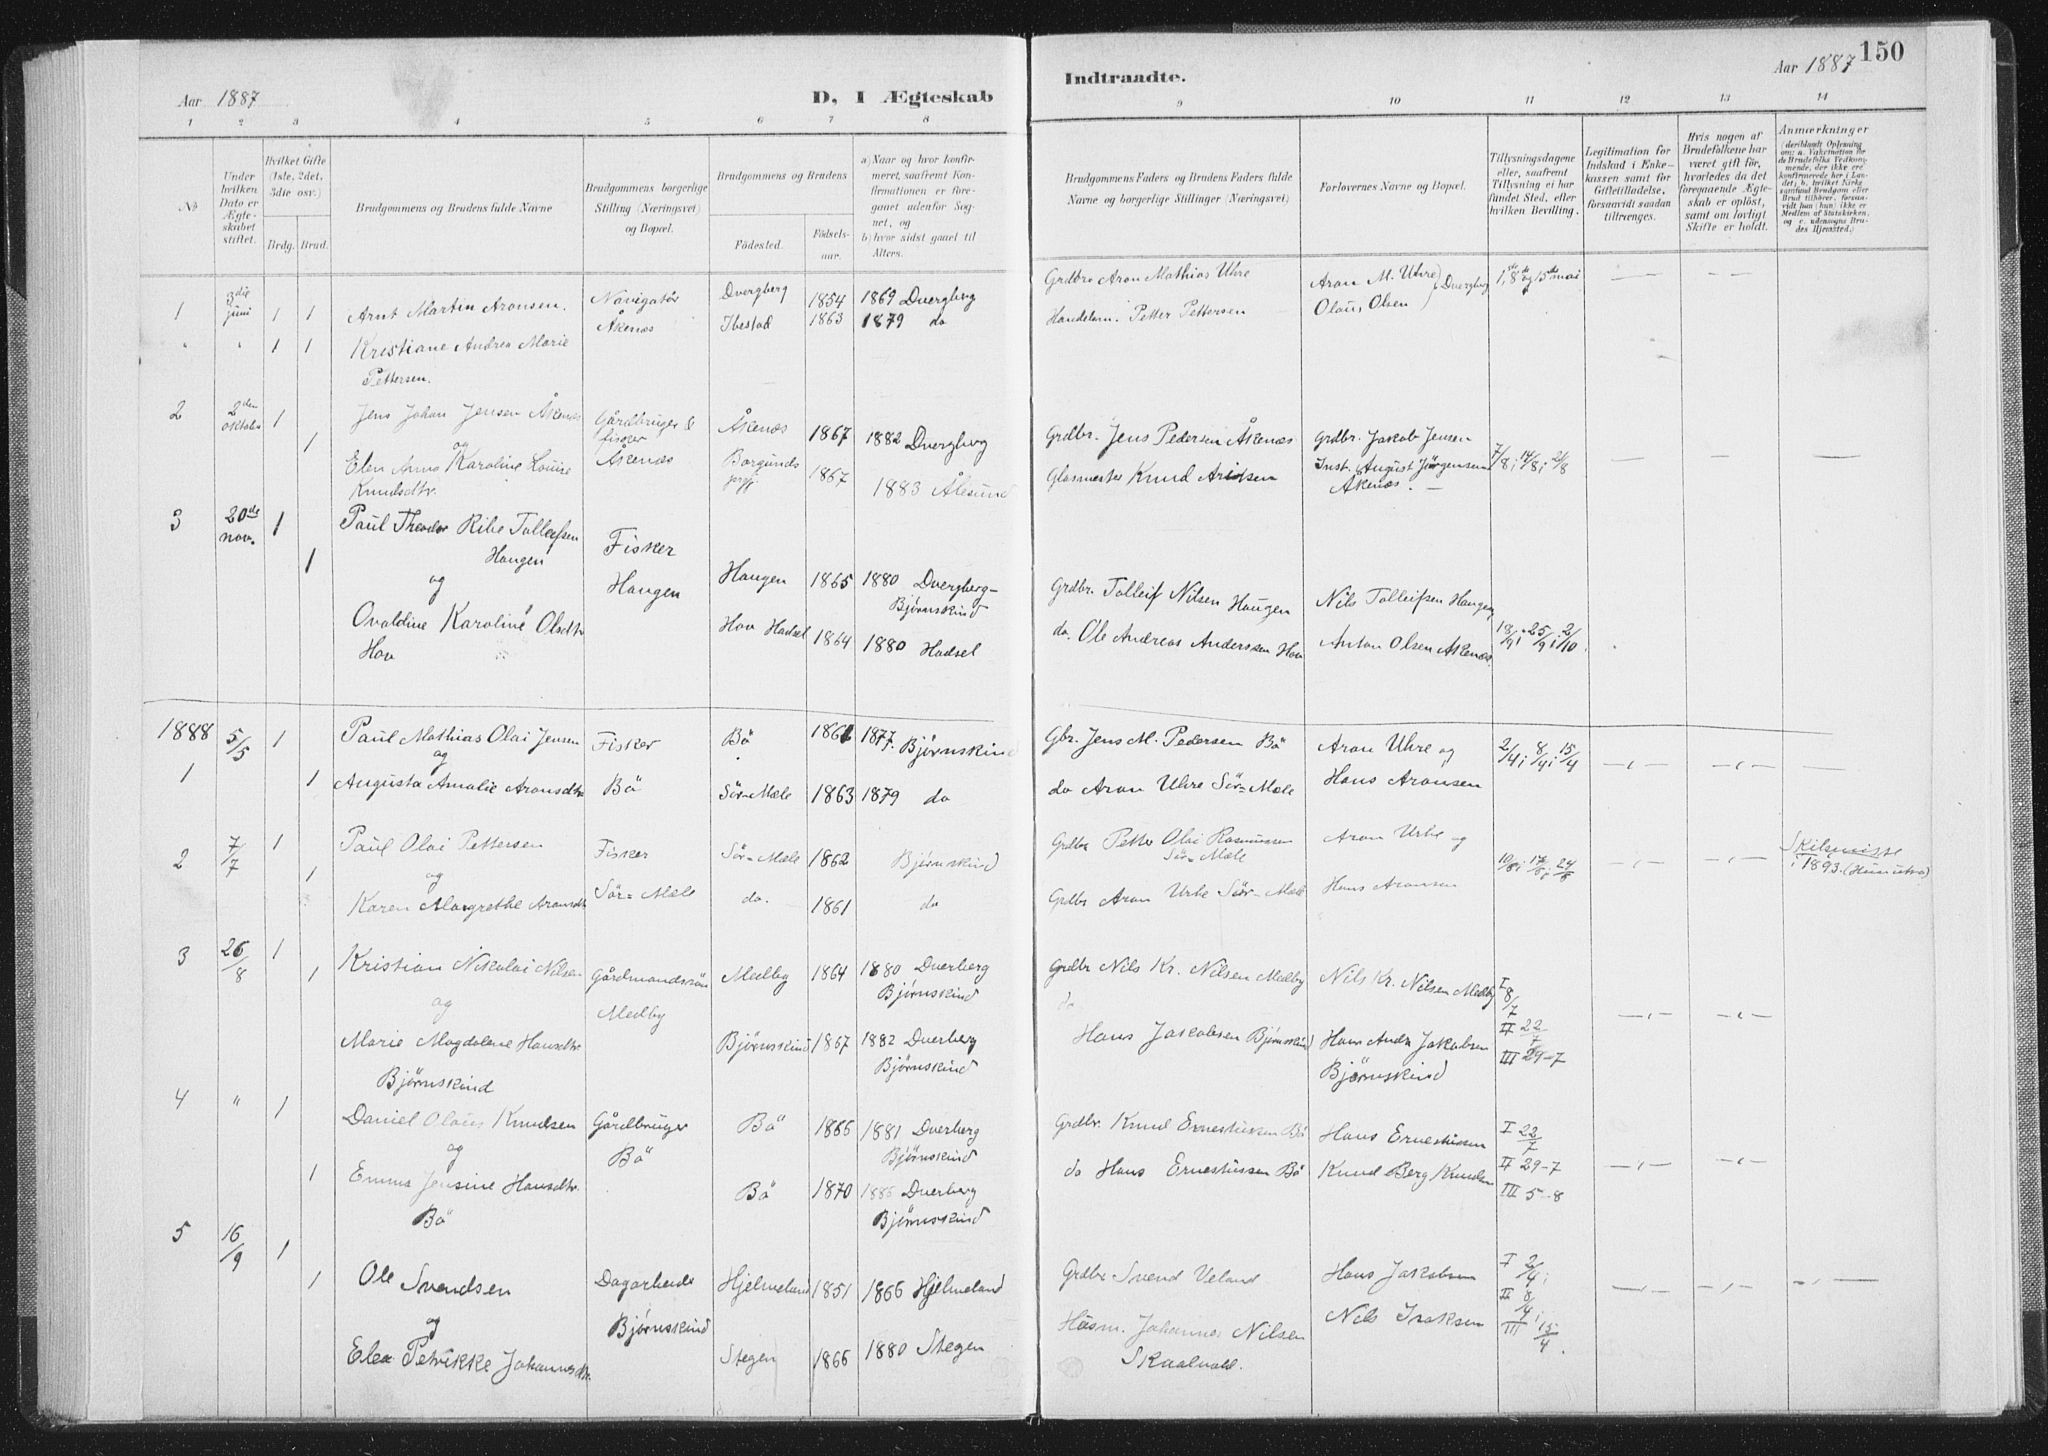 Aar 1887
D, I Ægteskab
1 2 3 4 5 6 7 8
No
Under hvilken Dato er Ægteskabet stiftet.
Hvilket Gifte (1ste, 2det, 3die osv.)
Brdg. Brud.
Brudgommens og Brudens fulde Navne
Brudgommens borgerlige Stilling (Næringsvei) og Bopæl.
Brudgommens og Brudens
Fødested. Fødselsaar.
a) Naar og hvor konfirmeret, saafremt Konfirmationen er foregaaet udenfor Sognet, og
b) hvor sidst gaaet til Alters.
1 3die juni 1 1 Arnt Martin Aronsen. Navigatör Dvergberg 1854 1869 Dvergberg
Åkenæs Ibestad 1863 1879 do
" " 1 1 Kristiane Andrea Marie
Pettersen.
2 2den oktober 1 Jens Johan Jensen Åkenæs Gårdbruger & Åkenæs 1867 1882 Dvergberg
og fisker
1 Elen Anna Karoline Louise Åkenæs Borgunds prgj. 1867
Knudsdtr. 1883 Ålesund
3 20de nov. 1 Paul Theodor Ribe Tolleifsen
Haugen Fisker
1 og Haugen Haugen 1865 1880 Dvergberg-
Bjørnskind
Ovaldine Karoline Olsdtr Hov Hadsel 1864 1880 Hadsel
Hov
1888 5/5 1 Paul Mathias Olai Jensen Fisker Bö 1861 1877. Bjørnskind
og
1 1 Augusta Amalie Aronsdtr Bö Sör-Mæle 1863 1879 do
2 7/7 1 Paul Olai Pettersen Fisker Sör-Mæle 1862 Bjørnskind
1 og
Karen Margrethe Aronsdtr Sör-Mæle do. 1861 do
3 26/8 1 Kristian Nikolai Nilsen Gårdmandssön Medby 1864 1880 Dverberg
1 og Medby Bjørnskind
Marie Magdalene Hansdtr. Bjørnskind 1867 1882 Dverberg
Bjørnskind Bjørnskind
4 " 1 Daniel Olaus Knudsen Gårdbruger Bö 1866 1881 Dverberg
og Bö Bjørnskind
1 Emma Jensine Hansdtr. Bö 1870 1886 Dverberg
Bö Bjørnskind
5 16/9 1
1 Ole Svendsen Dagarbeider Hjelmeland 1851 1866 Hjelmeland
og Bjørnskind
Elea Petrikke Johannesdtr. Stegen 1866 1880 Stegen
Indtraadte.
Aar 1887 150
9 10 11 12 13 14
Brudgommens Faders og Brudens Faders fulde Navne og borgerlige Stillinger (Næringsvei)
Forlovernes Navne og Bopæl.
Tillysningsdagene eller, saafremt Tillysning ei har fundet Sted, efter hvilken Bevilling.
Legitimation for Indskud i Enkekassen samt for Giftetilladelse, forsaavidt saadan tiltrænges.
Hvis nogen af Brudefolkene har været gift før, hvorledes da det foregaaende Ægteskab er opløst, samt om lovligt Skifte er holdt.
Anmærkninger (deriblandt Oplysning om: a. Vaksination for de Brudefolks Vedkommende, der ikke ere konfirmerede her i Landet; b. hvilket Kirkesamfund Brudgom eller Brud tilhører, forsaavidt han (hun) ikke er Medlem af Statskirken, og c. udensogns Brudes Hjemsted.)
Grdbr Aron Mathias Uhre Aron M. Uhre Dvergberg 1ste, 8de og 15de mai
Handelsm. Petter Pettersen Olaus Olsen
Grdbr. Jens Pedersen Åkenæs Grdbr. Jakob Jensen
Glasmester Knud Arntsen Inst. August Jörgensen 7/8; 14/8; 21/8
Åkenæs.
Grdbr. Tolleif Nilsen Haugen Nils Tolleifsen Haugen,
do. Ole Andreas Anderssen Hov Anton Olsen Åkenæs. 18/9; 25/9; 2/10
Gbr. Jens M. Pedersen Bö Aron Uhre og 2/4; 8/4; 15/4
do Aron Uhre Sör-Mæle Hans Aronsen
Grdbr Petter Olai Rasmussen Aron Urhe og Skilsmisse
Sör-Mæle 24/6 i 1893.
Grdbr Aron Urhe Sör-Mæle Hans Aronsen
Grdbr Nils Kr. Nilsen Medby Nils Kr. Nilsen Medby I 8/7
do
Hans Jakobsen Bjørnskind Hans Andr Jakobsen II 22/7
Bjørnskind III 29-7
Grdbr. Knud Ernestussen Bö Hans Ernestussen I 22/7
do Hans Ernestussen Bö Knud Berg Knudsen II 29-7
III 5-8
Grdbr Svend Veland Hans Jakobsen I 2/4;
II 8/4;
Husm. Johannes Nilsen Nils Isaksen III 15/4.
Skaalvold.